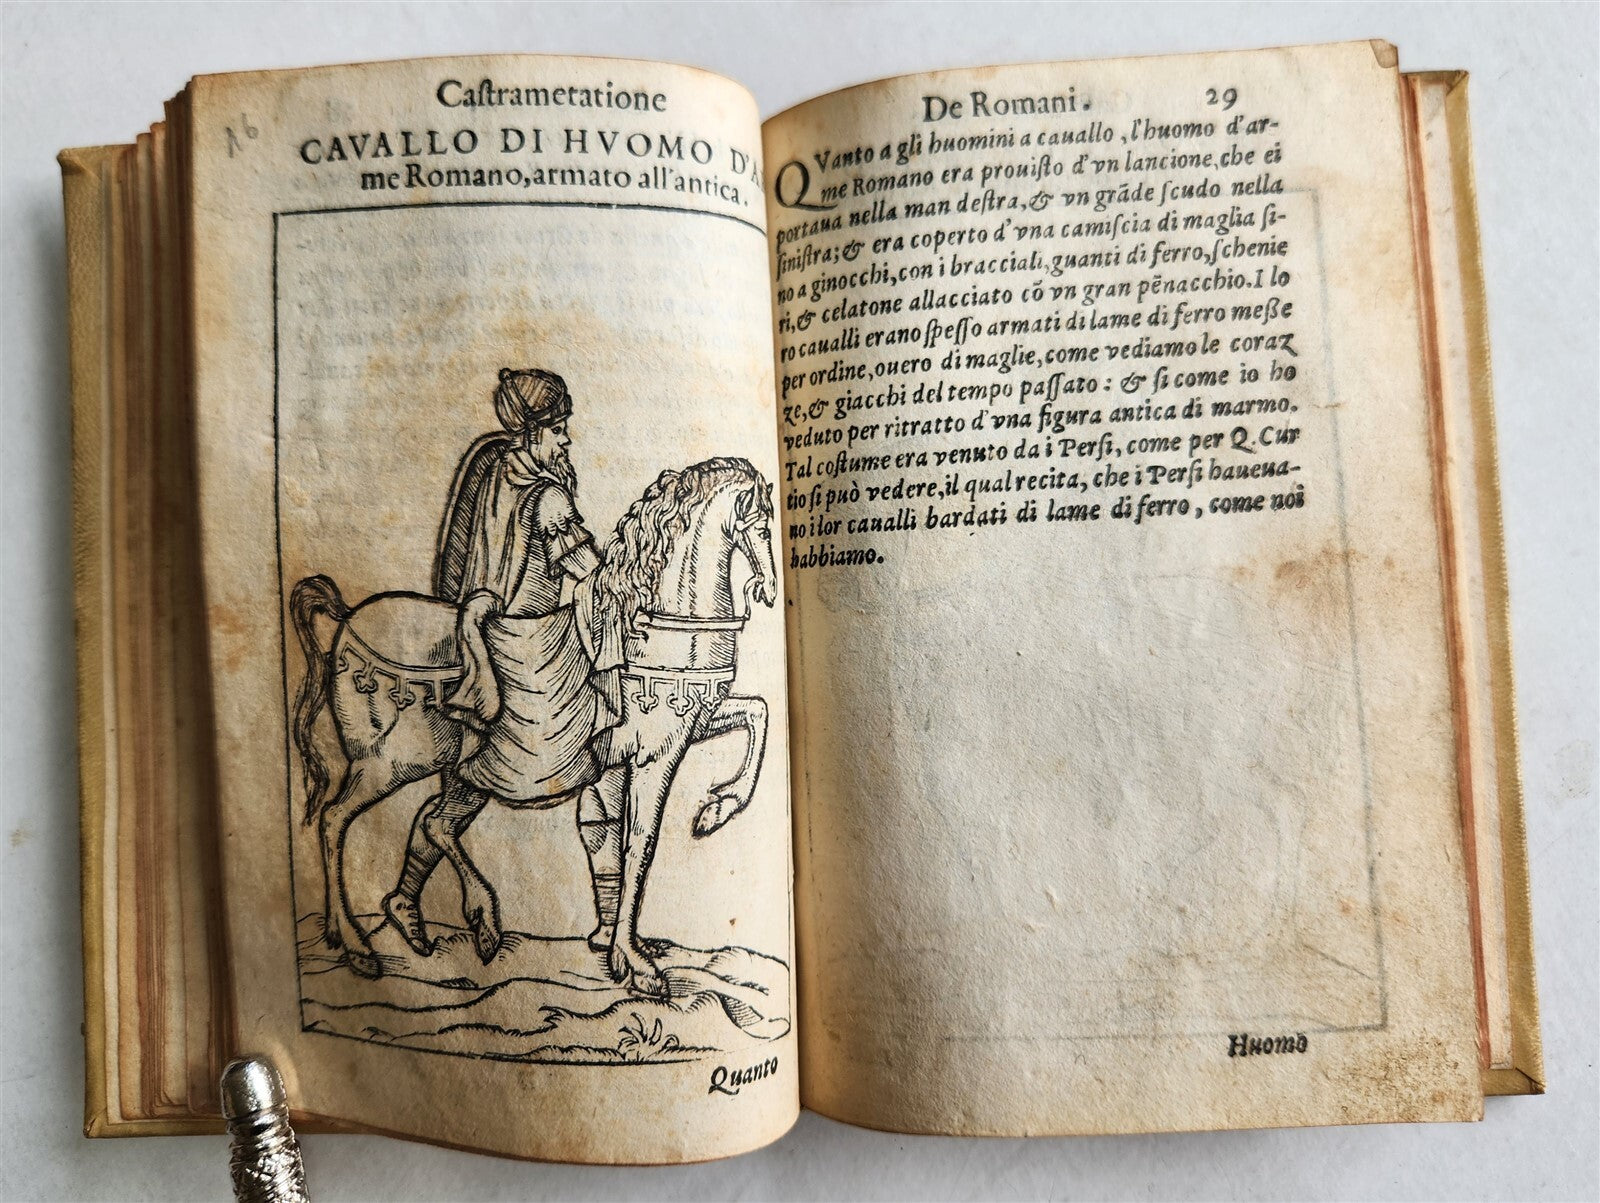 16
Castrametatione
CAVALLO DI HVOMO D'A
me Romano, armato all'antica.
Quanto
De Romani. 29
QVanto a gli huomini a cauallo, l'huomo d'ar-
me Romano era prouisto d'vn lancione, che ei
portaua nella man destra, & vn grãde scudo nella
sinistra; & era coperto d'vna camiscia di maglia si-
no a ginocchi, con i bracciali, guanti di ferro, schenie
ri, & celatone allacciato cõ vn gran pẽnacchio. I lo
ro caualli erano spesso armati di lame di ferro messe
per ordine, ouero di maglie, come vediamo le coraz
ze, & giacchi del tempo passato: & si come io ho
veduto per ritratto d'vna figura antica di marmo.
Tal costume era venuto da i Persi, come per Q. Cur
tio si può vedere, il qual recita, che i Persi haueua-
no i lor caualli bardati di lame di ferro, come noi
habbiamo.
Huomo